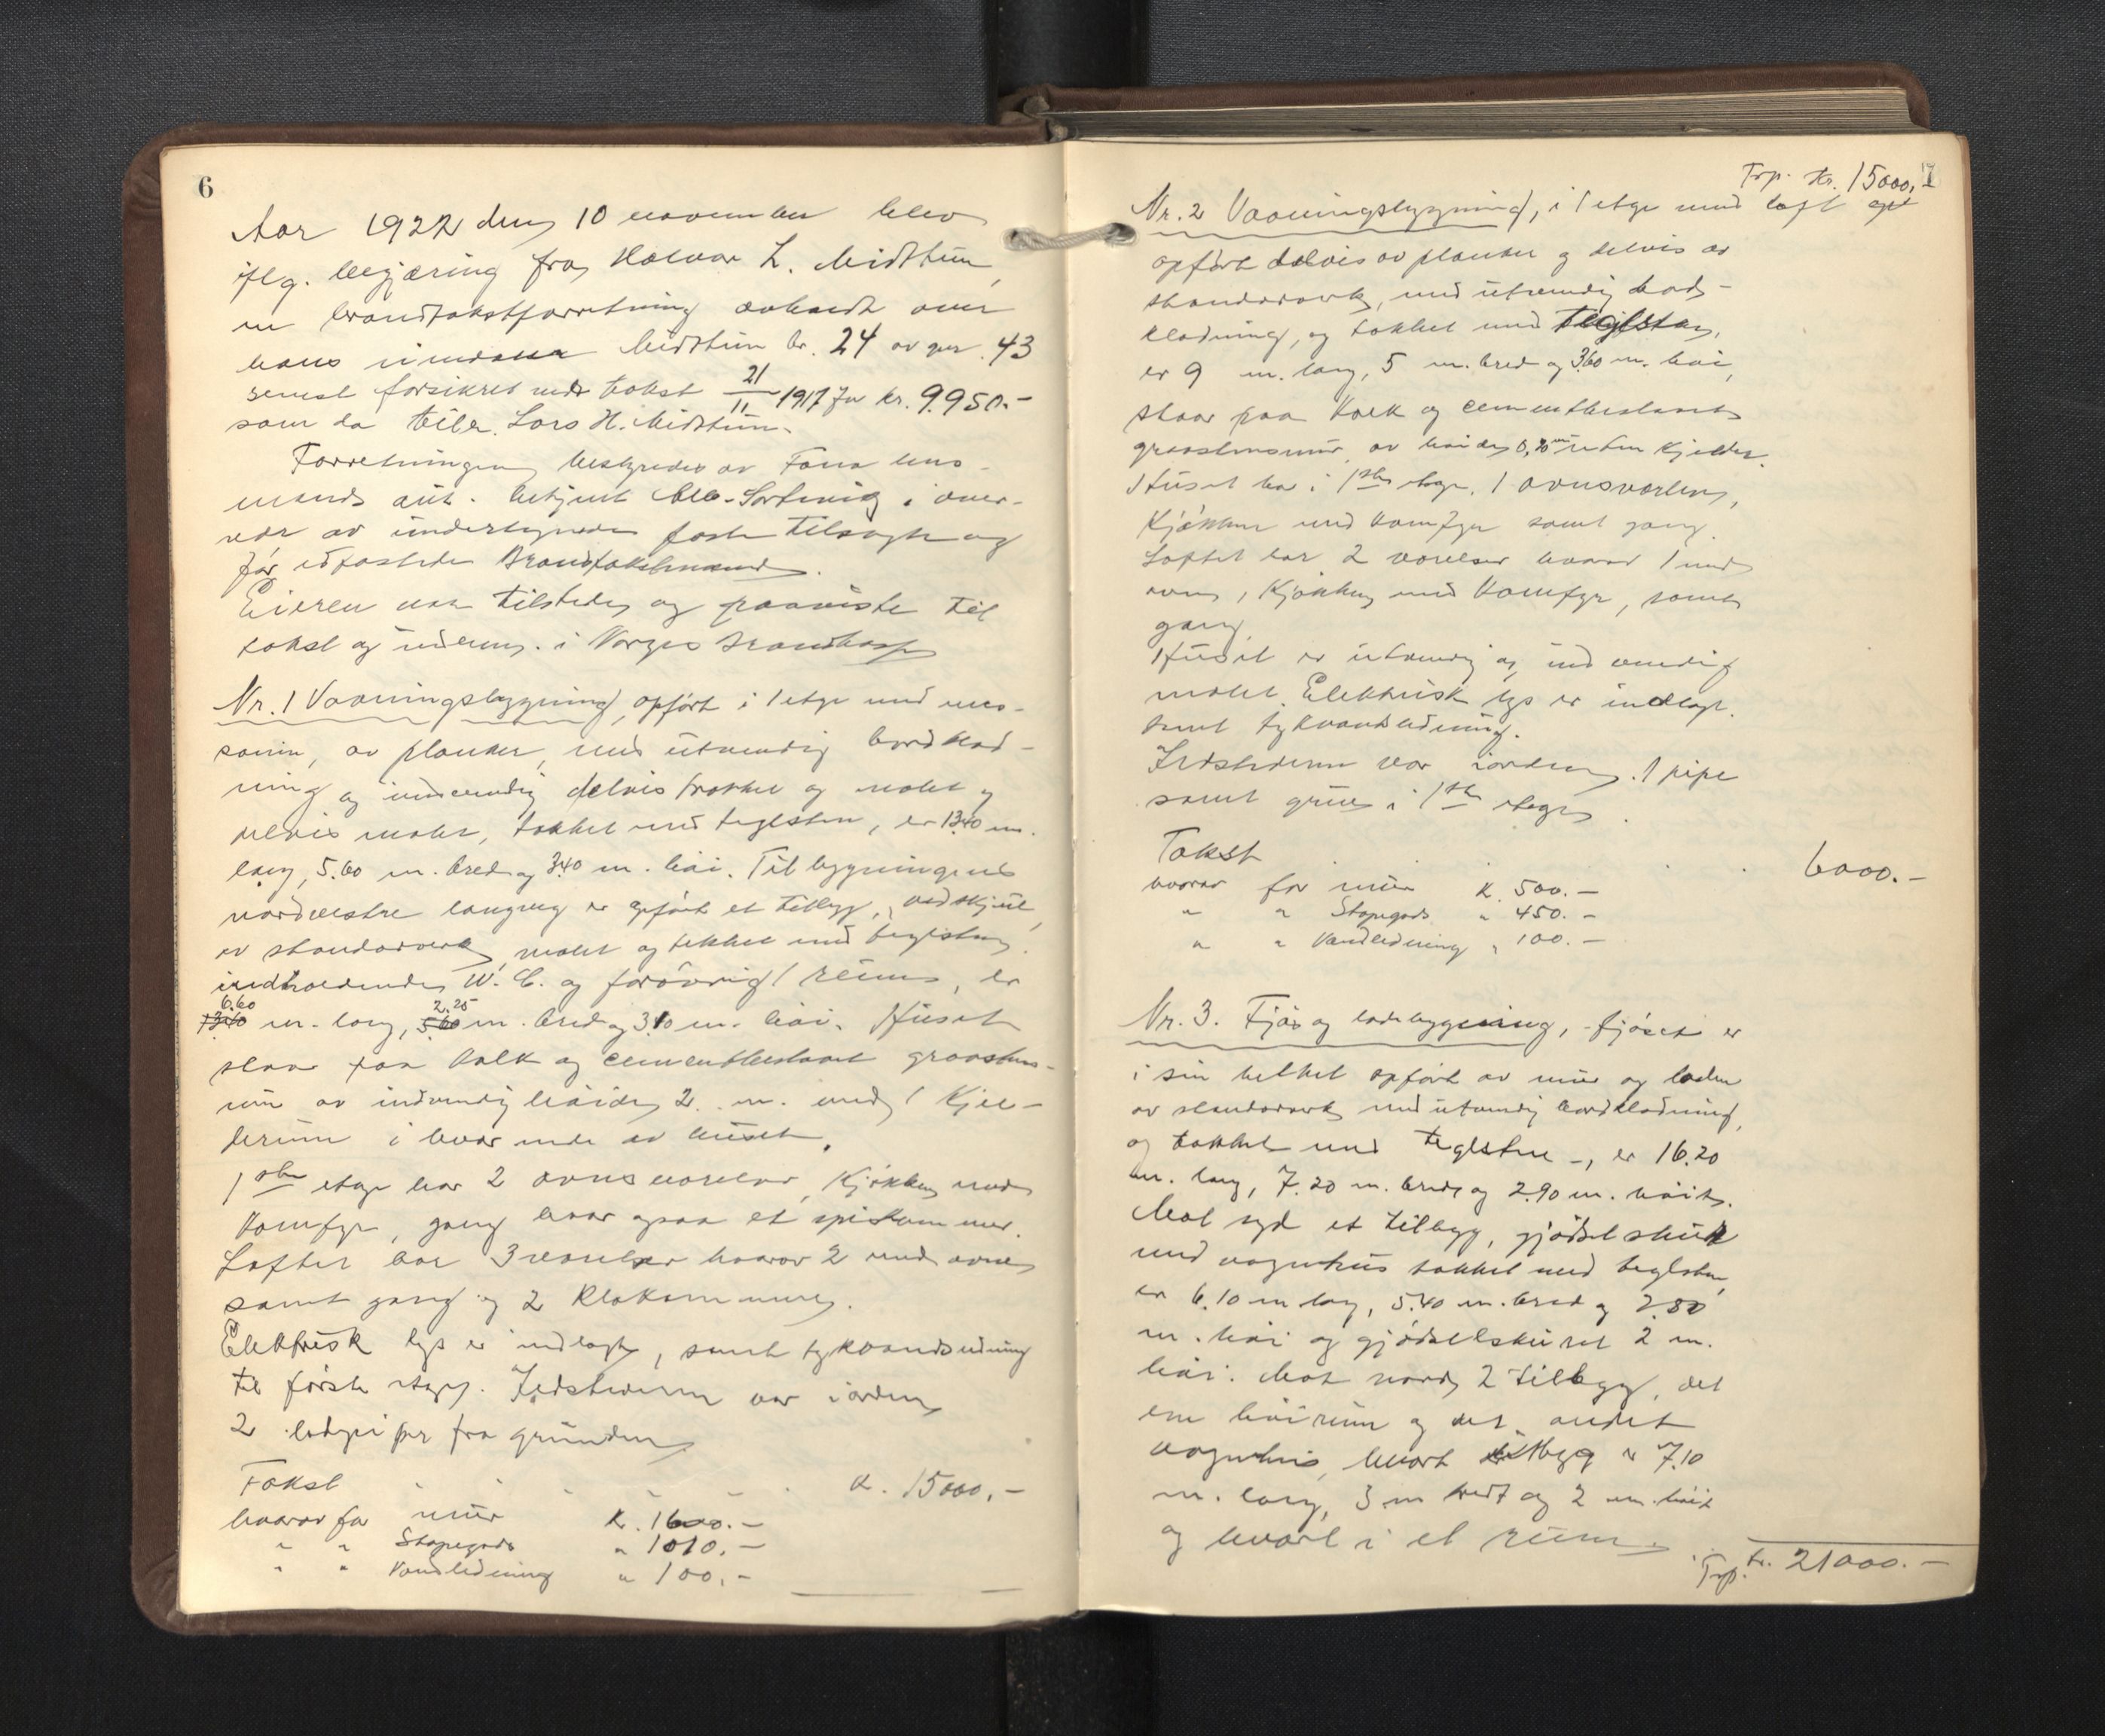 6
Aar 1922 den 10 november blev
iflg. begjæring fra Halvor L. Midttun,
en brandtakstforretning avholdt over
hans eiendom Midttun br. 24 av gnr. 43
senest forsikret under takst 21/11 1917 for kr. 9.950.-
som da tilh. Lars H. Midttun.
Forretningen bestyredes av Fana lens-
mands aut. betjent i over-
vær av undertegnede faste tilsagte og
før edfæstede Brandtakstmænd.
Eieren var tilstede og paaviste til
takst og indlem. i Norges Brandkasse
Nr. 1 Vaaningsbygning, opført i 1 etage med mes-
sanin, av planker, med utvendig bordklæd-
ning og indvendig delvis trukket og malet og
delvis malet, tækket med teglsten, er 13.40 m.
lang, 5.60 m. bred og 3.40 m. høi. Til bygningens
nordvestre langveg er opført et tilbygg, vedskjul,
av standarverk, malet og tækket med teglsten
indholdende W. C. og forøvrig 1 rum, er
6.60 2.25
13.40 m. lang, 5.60 m. bred og 3.10 m. høi. Huset
staar paa kalk og cementbeslaaet graastens-
mur av indvendig høide 2 m. med 1 kjel-
lerrum i hver ende av huset.
1ste etage har 2 ovnsværelser, Kjøkken med
Komfyr, gang hvor ogsaa et spiskammer.
Loftet har 3 værelser hvorav 2 med ovne
samt gang og 2 Klækammere.
Elektrisk lys er indlagt, samt trykvandsledning
til første etage. Ildstederne var i orden
2 pipper fra grunden
Takst . . . . . . k. 15000,-
hvorav for mur k. 1600.-
" " Støpegods " 1010.-
" " Vandledning " 100.-
7
Trp. kr. 15000.
Nr. 2 Vaaningsbygning, i 1 etage med loft
opført delvis av planker og delvis av
standarverk, med utvendig bord-
klædning, og tækket med teglsten,
er 9 m. lang, 5 m. bred og 3.60 m. høi,
staar paa kalk og cementbeslaaet
graastensmur av høide 0,70 m uten Kjelder.
Huset har i 1ste etage, 1 ovnsværelse,
Kjøkken med Komfyr samt gang.
Loftet har 2 værelser hvorav 1 med
ovn, Kjøkken med Komfyr, samt
gang
Huset er utvendig og indvendig
malet. Elektrisk lys er indlagt
samt trykvandsledning.
Ildstederne var i orden. 1 pipe
samt grue i 1ste etage.
Takst . . . 6000.-
hvorav for mur k. 500.-
" " Støpegods " 450.-
" " Vandledning " 100.-
Nr. 3. Fjøs og ladebygning, fjøset er
i sin helhet opført av mur og laden
av standarverk med utvendig bordklædning,
og tækket med teglsten -, er 16.20
m. lang, 7.20 m. bred og 2.90 m. høit.
Mot syd et tilbygg, gjødselskur
med vognhus tækket med teglsten,
er 6.10 m lang, 5.40 m. bred og 2.80
m. høi og gjødselskuret 2 m.
høi. Mot nord 2 tilbygg, det
ene høirum og det andet
vognhus, hvert tilbygg er 7.10
m. lang, 3 m bredt og 2 m. høit
og hvert i et rum.
Trp. kr. 21000.-